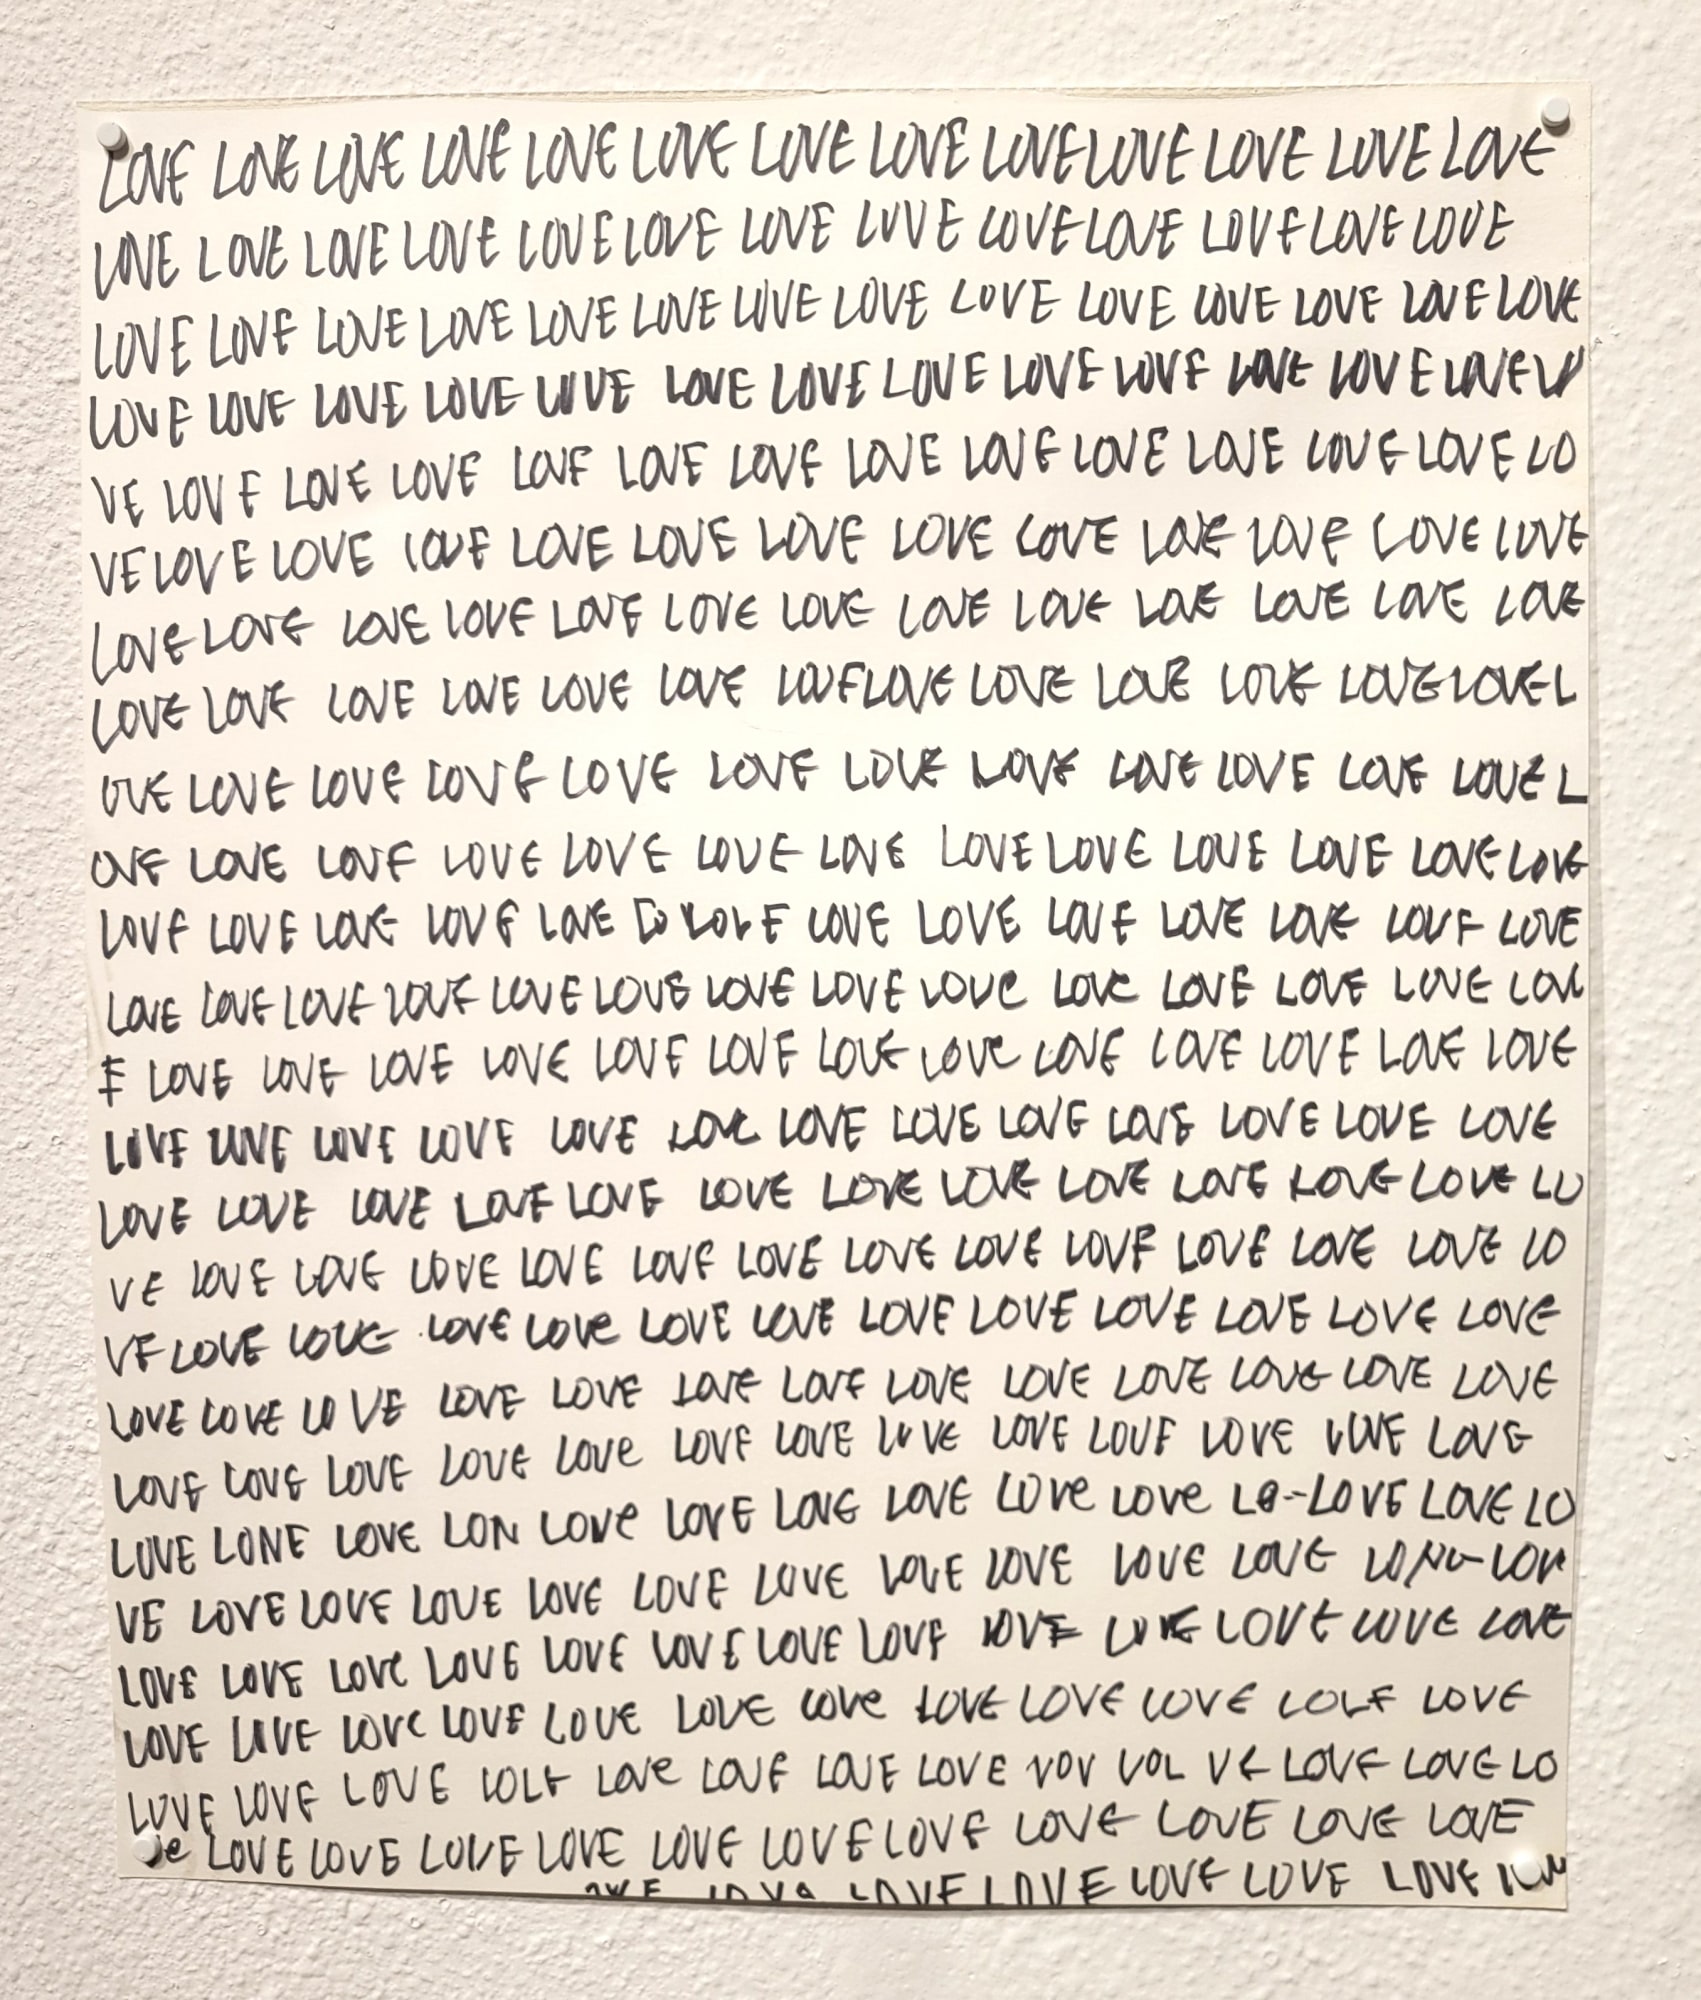 LOVE LOVE LOVE LOVE LOVE LOVE LOVE LOVE LOVE LOVE LOVE LOVE LOVE
LOVE LOVE LOVE LOVE LOVE LOVE LOVE LOVE LOVE LOVE LOVE LOVE LOVE
LOVE LOVE LOVE LOVE LOVE LOVE LOVE LOVE LOVE LOVE LOVE LOVE LOVE LOVE
LOVE LOVE LOVE LOVE LOVE LOVE LOVE LOVE LOVE LOVE LOVE LOVE LOVE LO
VE LOVE LOVE LOVE LOVE LOVE LOVE LOVE LOVE LOVE LOVE LOVE LOVE LO
VE LOVE LOVE LOVE LOVE LOVE LOVE LOVE LOVE LOVE LOVE LOVE LOVE
LOVE LOVE LOVE LOVE LOVE LOVE LOVE LOVE LOVE LOVE LOVE LOVE LOVE
LOVE LOVE LOVE LOVE LOVE LOVE LOVE LOVE LOVE LOVE LOVE LOVE LOVE L
OVE LOVE LOVE LOVE LOVE LOVE LOVE LOVE LOVE LOVE LOVE LOVE L
OVE LOVE LOVE LOVE LOVE LOVE LOVE LOVE LOVE LOVE LOVE LOVE LOVE
LOVE LOVE LOVE LOVE LOVE LO LOVE LOVE LOVE LOVE LOVE LOVE LOVE LOVE
LOVE LOVE LOVE LOVE LOVE LOVE LOVE LOVE LOVE LOVE LOVE LOVE LOVE LOV
E LOVE LOVE LOVE LOVE LOVE LOVE LOVE LOVE LOVE LOVE LOVE LOVE LOVE
LOVE LOVE LOVE LOVE LOVE LOVE LOVE LOVE LOVE LOVE LOVE LOVE LOVE
LOVE LOVE LOVE LOVE LOVE LOVE LOVE LOVE LOVE LOVE LOVE LOVE LO
VE LOVE LOVE LOVE LOVE LOVE LOVE LOVE LOVE LOVE LOVE LOVE LOVE LO
VE LOVE LOVE LOVE LOVe LOVE LOVE LOVE LOVE LOVE LOVE LOVE LOVE
LOVE LOVE LOVE LOVE LOVE LOVE LOVE LOVE LOVE LOVE LOVE LOVE LOVE
LOVE LOVE LOVE LOVE LOVe LOVE LOVE LOVE LOVE LOVE LOVE LOVE LOVE
LOVE LONE LOVE LON LOVe LOVE LOVE LOVE LOVe LOVe LO-LOVE LOVE LO
VE LOVE LOVE LOVE LOVE LOVE LOVE LOVE LOVE LOVE LOVE LOV
LOVE LOVE LOVe LOVE LOVE LOVE LOVE LOVE LOVE LOVE LOVE LOVE LOVE
LOVE LOVE LOVE LOVE LOVE LOVE LOVe LOVE LOVE LOVE LOLE LOVE
LOVE LOVE LOVE LOLE LOVe LOVE LOVE LOVE VOV VOL VE LOVE LOVE LO
Ve LOVE LOVE LOVE LOVE LOVE LOVE LOVE LOVE LOVE LOVE LOVE
LOVE LOVE LOVE LOVE LOVE LOVE